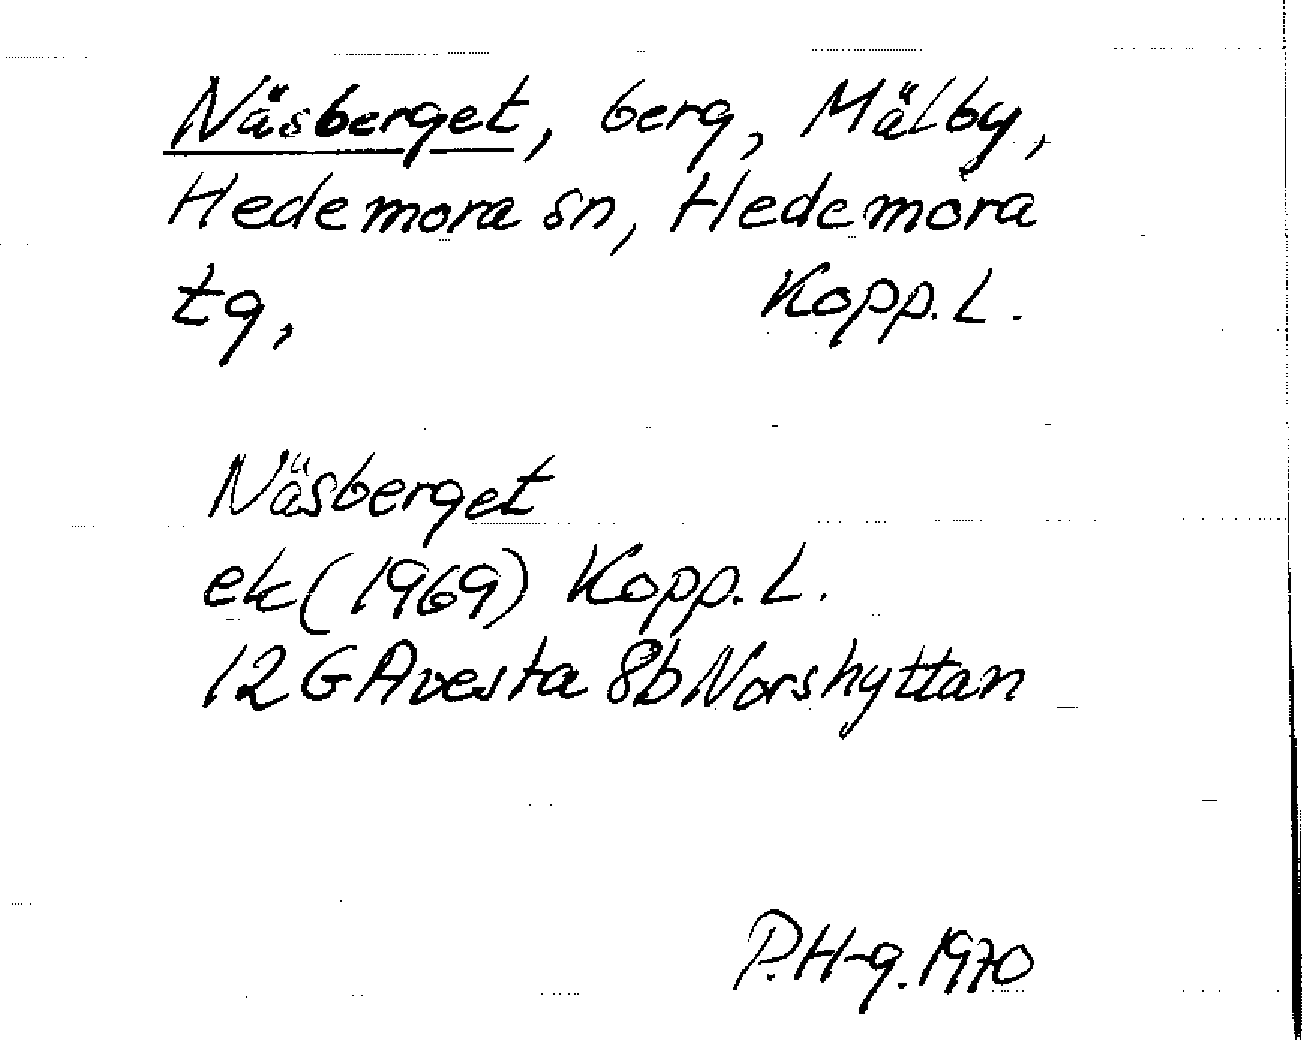 Näsberget, berg, Mälby,
Hedemora sn, Hedemora
tg, Kopp. L.
Näsberget
ek (1969) Kopp. L.
12 G Avesta 8b Norshyttan
P.H-g. 1970